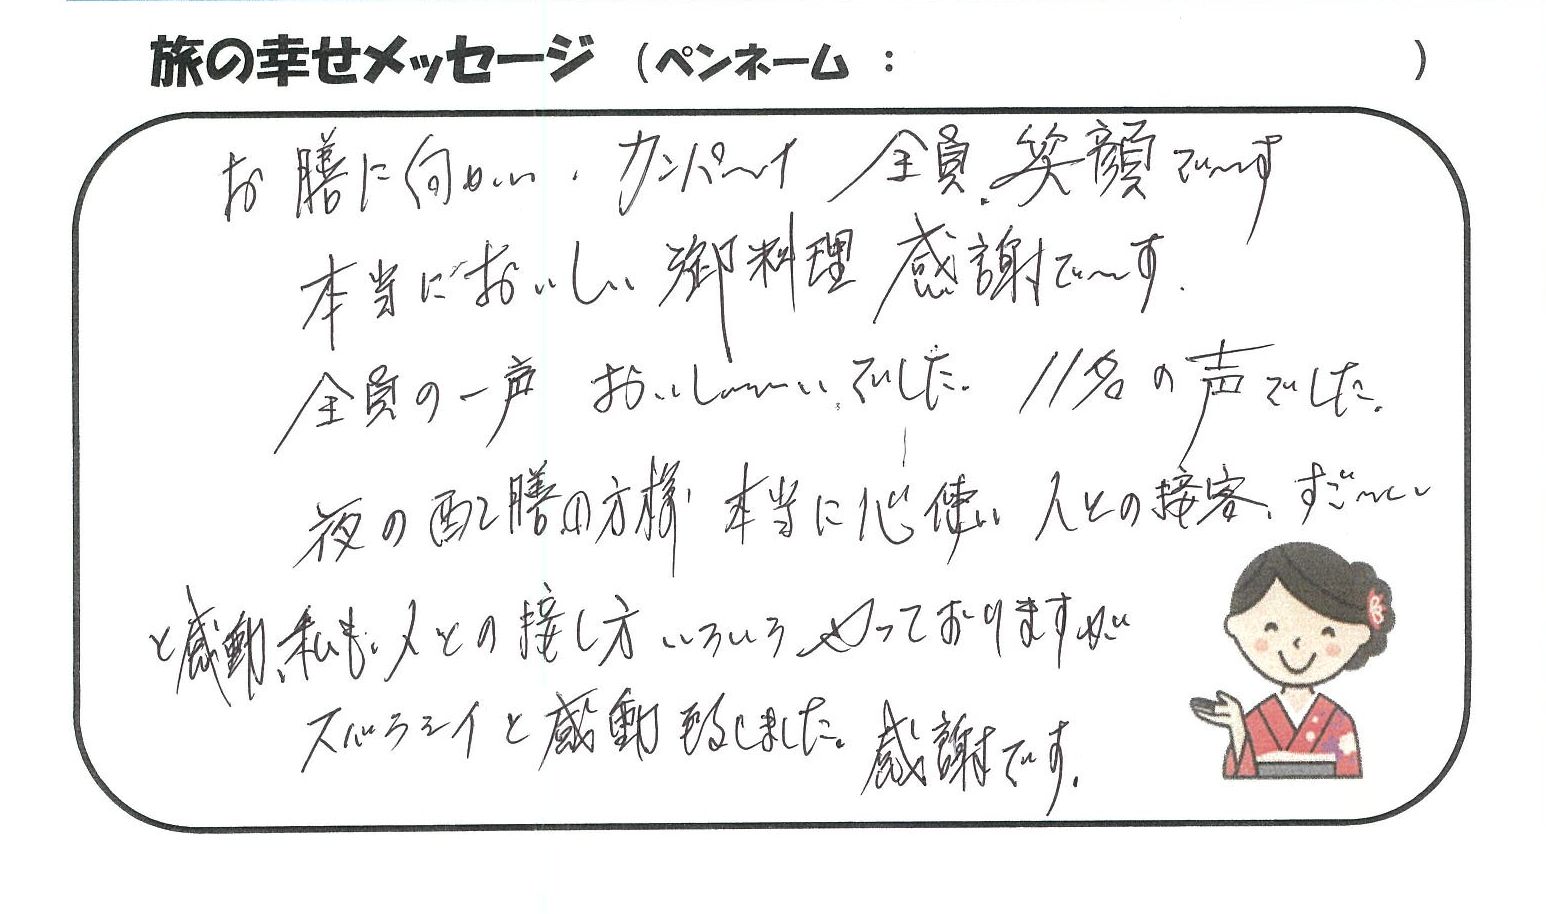 旅の幸せメッセージ (ペンネーム: )
お膳に向かい、カンパ〜イ 全員、笑顔で〜す
本当においしい御料理 感謝で〜す.
全員の一声 おいし〜〜い、でした. 11名の声でした.
夜の配膳の方様 本当に心使い 人との接客、すご〜い
と感動、私も、人との接し方いろいろやっておりますが
スバラシイと感動致しました. 感謝です.